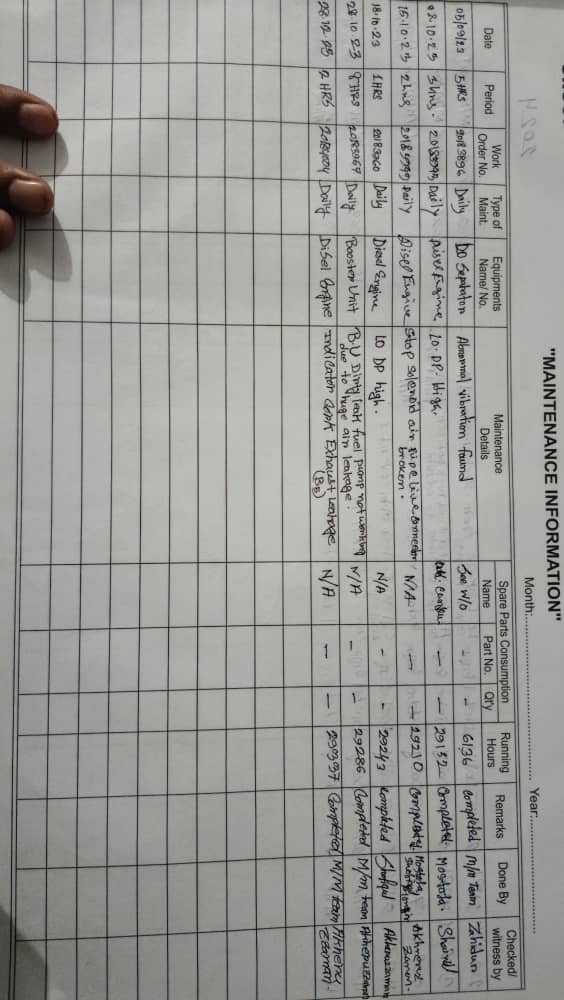 "MAINTENANCE INFORMATION"
Month: Year
Date Period Work Order No. Type of Maint. Equipments Name/ No. Maintenance Details Spare Parts Consumption Name Part No. Qt'y Running Hours Remarks Done By Checked/ witness by
05/09/23 5HRS 20183896 Daily DO Separator Abnormal vibration found See W/O - - 6136 completed M/M Team Zahidur
02.10.23 3hrs. Daily Diesel Engine LO. DP. High. - - 29132 Completed. Mostofa.
15.10.23 2hrs, Daily Diesel Engine Stop Solenoid air pipe line connector broken. N/A - - 29210 Completed. Mostofa,
18.10.23 1HRS 20183960 Daily Diesel Engine LO DP high. N/A - - 29243 completed Shafiqul Akheruzzaman
28.10.23 8HRS 20183967 Daily Booster Unit B.U Dirty leak fuel pump not working due to huge air leakage. N/A - - 29286 Completed M/M team
28.12.23 2HRS Daily Disel Engine Indicator Cock Exhaust Leakage (B5) N/A - - Completed M/M team